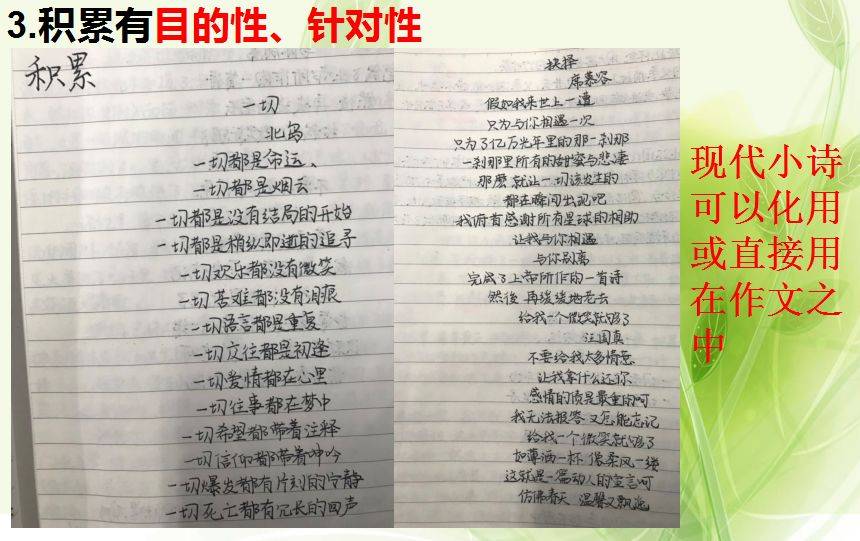 3.积累有目的性、针对性
积累
一切
北岛
一切都是命运、
一切都是烟云
一切都是没有结局的开始
一切都是稍纵即逝的追寻
一切欢乐都没有微笑
一切苦难都没有泪痕
一切语言都是重复
一切交往都是初逢
一切爱情都在心里
一切往事都在梦中
一切希望都带着注释
一切信仰都带着呻吟
一切爆发都有片刻的宁静
一切死亡都有冗长的回声
抉择
席慕容
假如我来世上一遭
只为与你相遇一次
只为了亿万光年里的那一刹那
一刹那里所有的甜蜜与悲凄
那麽就让一切该发生的
都在瞬间出现吧
我俯首感谢所有星球的相助
让我与你相遇
与你别离
完成了上帝所作的一首诗
然後 再缓缓地老去
给我一个微笑就够了
汪国真
不要给我太多情意
让我拿什么还你
感情的债是最重的呵
我无法报答 又怎能忘记
给我一个微笑就够了
如薄酒一杯 像柔风一缕
这就是一篇动人的宣言呵
仿佛春天 温馨又飘逸
现代小诗
可以化用
或直接用
在作文之
中